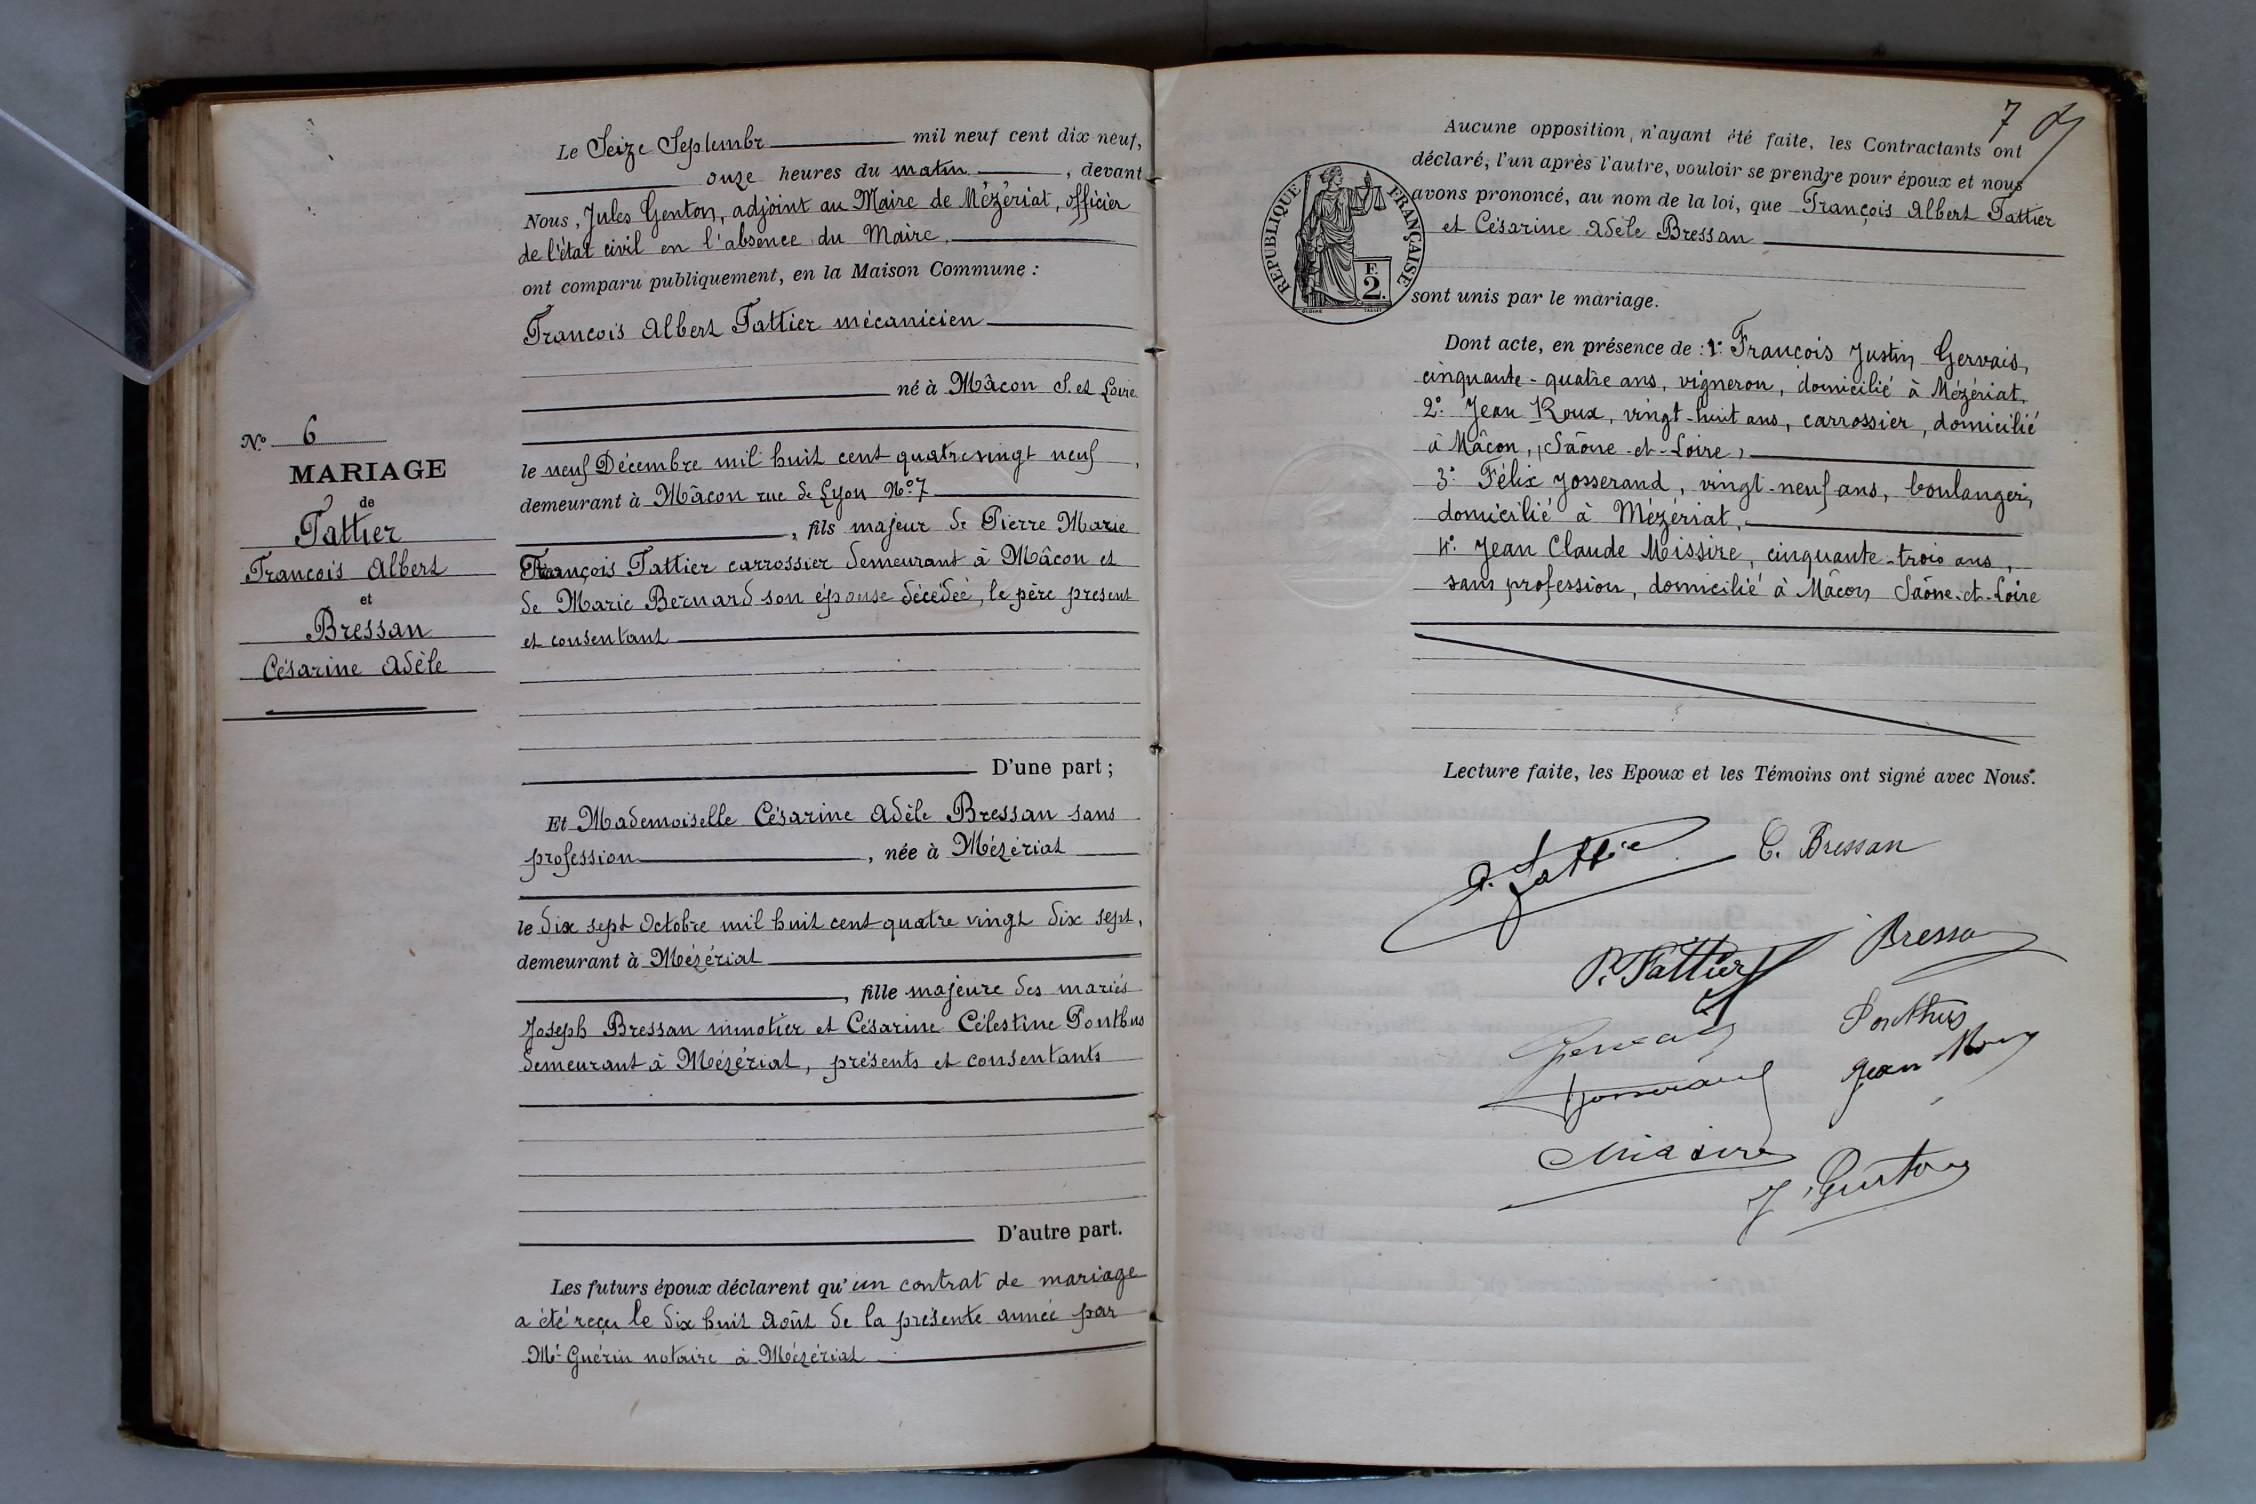 N° 6
MARIAGE
de
Tattier
François Albert
et
Bressan
Césarine Adèle
Le Seize Septembre mil neuf cent dix-neuf,
onze heures du matin, devant
Nous, Jules Genton, adjoint au Maire de Mézériat, officier
de l'état civil en l'absence du Maire,
ont comparu publiquement, en la Maison Commune :
François Albert Tattier mécanicien
né à Mâcon S. et Loire
le neuf Décembre mil huit cent quatrevingt neuf,
demeurant à Mâcon rue de Lyon N° 7
, fils majeur de Pierre Marie
François Tattier carrossier demeurant à Mâcon et
de Marie Bernard son épouse décédée, le père présent
et consentant
D'une part ;
Et Mademoiselle Césarine Adèle Bressan sans
profession, née à Mézériat
le dix sept Octobre mil huit cent quatre vingt dix sept,
demeurant à Mézériat
, fille majeure des mariés
Joseph Bressan minotier et Césarine Célestine Ponthus
demeurant à Mézériat, présents et consentants
D'autre part.
Les futurs époux déclarent qu'un contrat de mariage
a été reçu le dix huit Août de la présente année par
Me Guérin notaire à Mézériat
7
Aucune opposition, n'ayant été faite, les Contractants ont
déclaré, l'un après l'autre, vouloir se prendre pour époux et nous
avons prononcé, au nom de la loi, que François Albert Tattier
et Césarine Adèle Bressan
REPUBLIQUE FRANÇAISE
F.
2.
sont unis par le mariage.
Dont acte, en présence de : 1° François Justin Gervais,
cinquante-quatre ans, vigneron, domicilié à Mézériat,
2° Jean Roux, vingt-huit ans, carrossier, domicilié
à Mâcon, (Saône-et-Loire),
3° Félix Josserand, vingt-neuf ans, boulanger,
domicilié à Mézériat,
4° Jean Claude Missire, cinquante-trois ans,
sans profession, domicilié à Mâcon Saône-et-Loire
Lecture faite, les Epoux et les Témoins ont signé avec Nous.
C. Bressan
P. Tattier
Bressan
Gervais
Ponthus
Josserand
Jean Roux
Missire
J. Genton